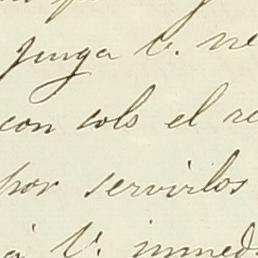 juzga V. ne
con solo el re
por servirlos
á V. inmed